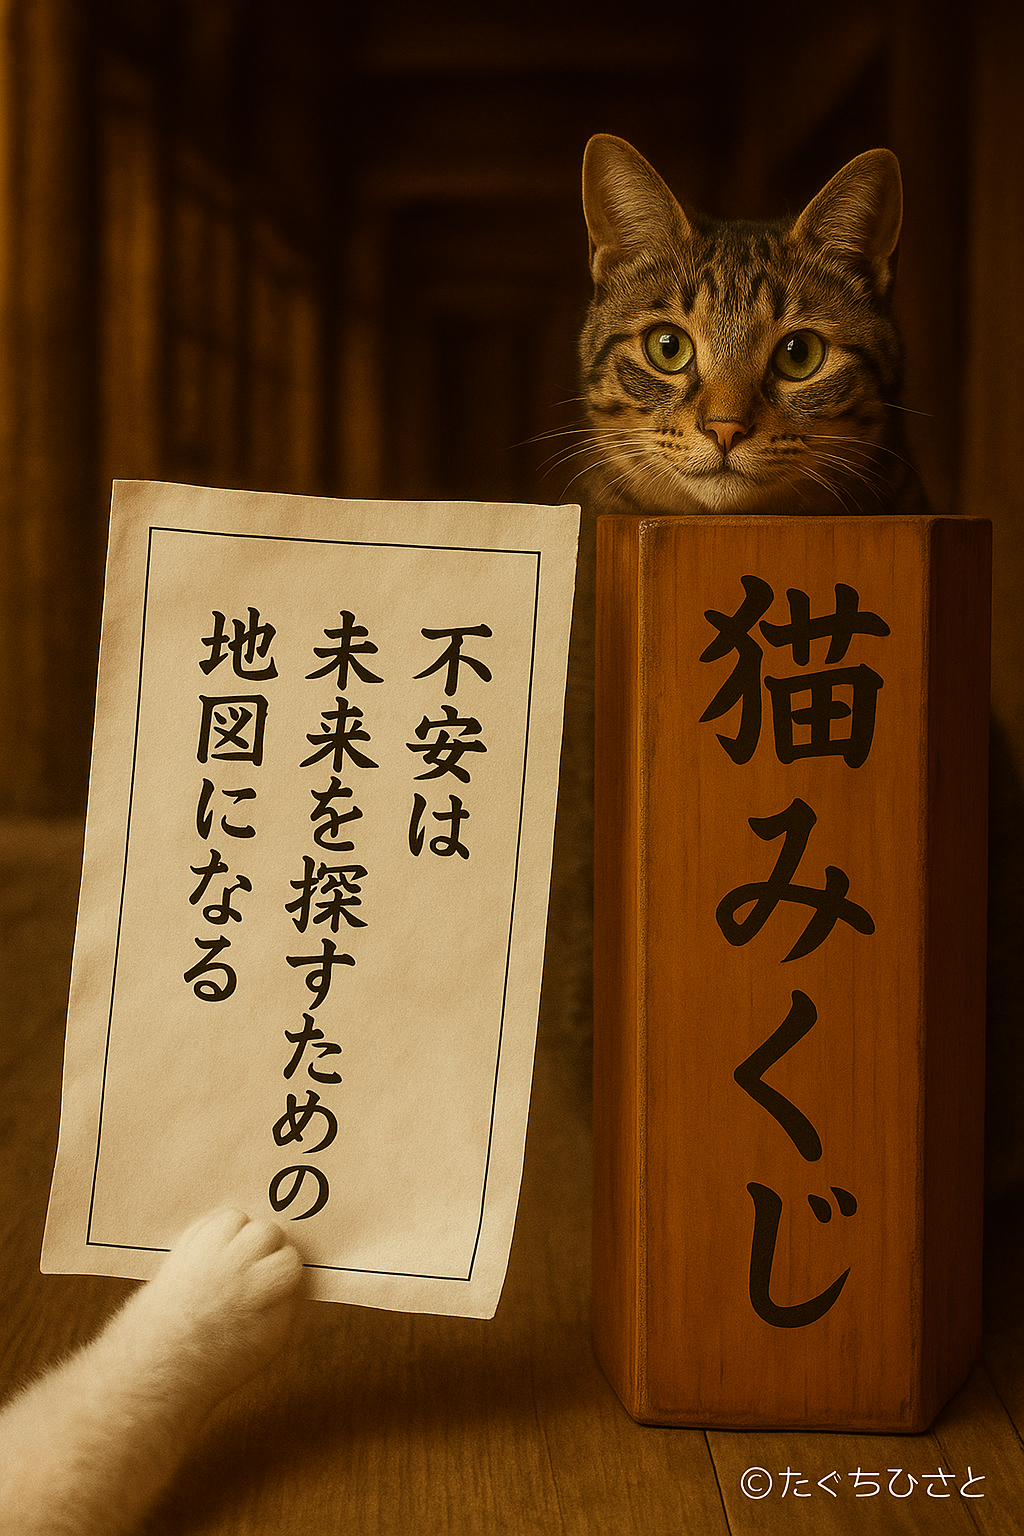 不安は
未来を探すための
地図になる
猫みくじ
©たぐちひさと